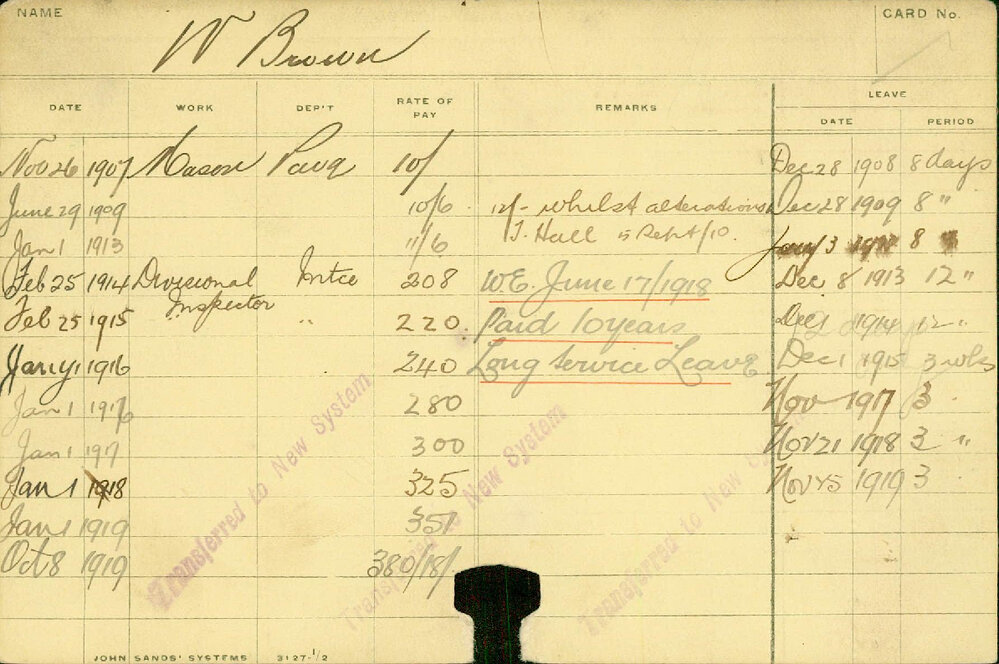 NAME W Brown CARD No.
LEAVE
DATE WORK DEP'T RATE OF PAY REMARKS DATE PERIOD
Nov 26 1907 Mason Pavg 10/ Dec 28 1908 8 days
June 29 1909 10/6 12/- whilst alterations Dec 28 1909 8 "
Jan 1 1913 11/6 T. Hall 15 Sept/10. Jany 3 8 "
Feb 25 1914 Divisional Mtce 208 W.E. June 17/1918 Dec 8 1913 12 "
Inspector
Feb 25 1915 " 220. Paid 10 years Dec 1 1914 12 "
Jany 1 1916 240 Long Service Leave Dec 1 1915 3 wks
Jan 1 1916 280 Nov 1917 3
Jan 1 1917 300 Nov 21 1918 3 "
Jan 1 1918 325 Nov 1919 3
Jan 1 1919 351
Oct 8 1919 380/18/.
Transferred to New System
Transferred to New System
Transferred to New System
JOHN SANDS' SYSTEMS 3127-1/2